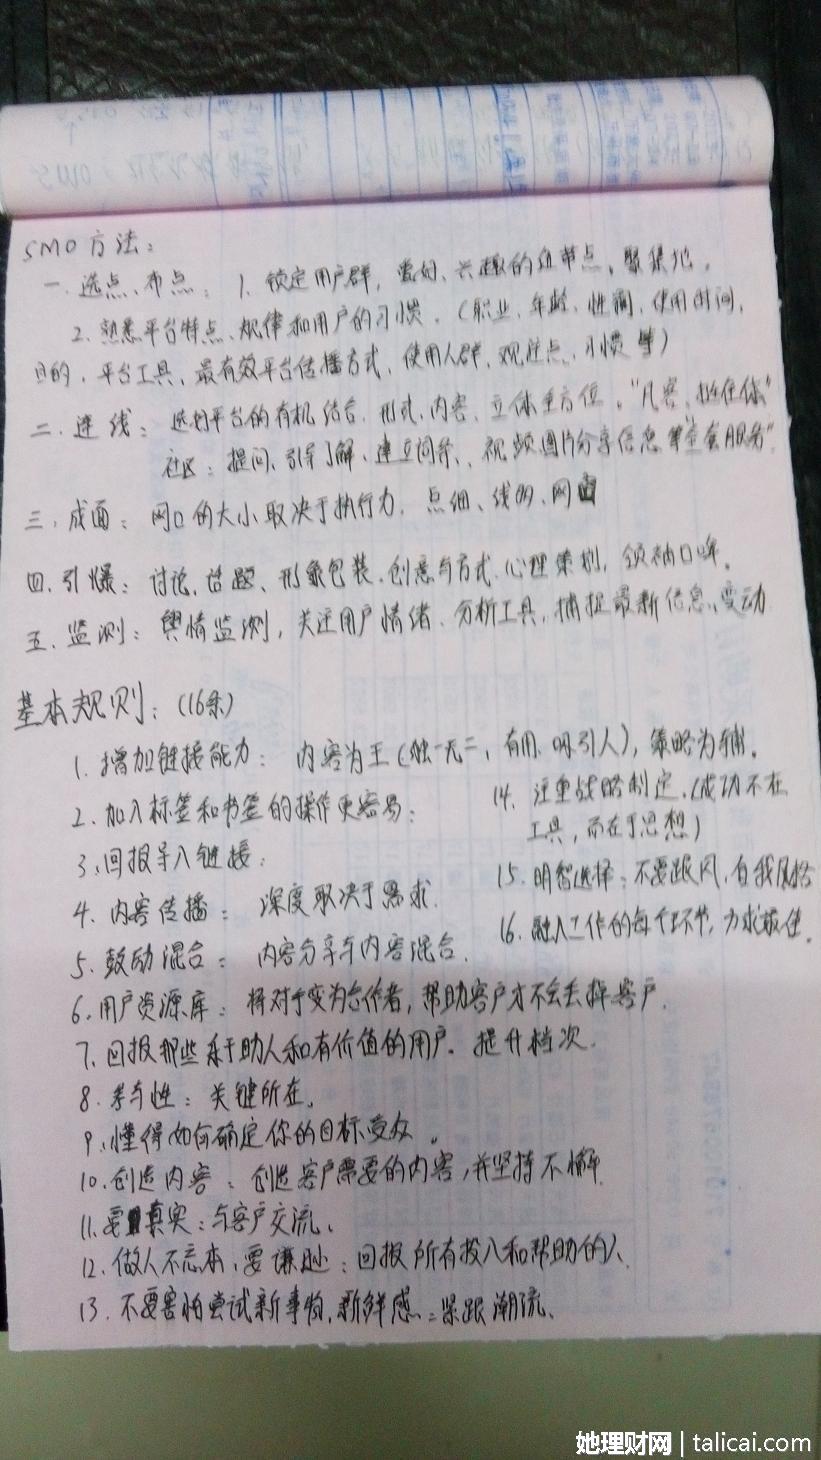 SMO方法:
一.选点、布点: 1.锁定用户群,爱好、兴趣的通节点、聚集地。
2.熟悉平台特点、规律和用户的习惯。(职业、年龄、性别、使用时间、
目的、平台工具、最有效平台传播方式、使用人群、观注点、习惯等)
二.连线: 平台的有机结合.形式、内容、立体全方位。"凡客、
社区:提问、引导了解、建立词条、视频图片分享信息等全套服务"
三.成面: 网口的大小取决于执行力. 点细、线的、网
四.引爆: 讨论、话题、形象包装、创意与方式、心理策划,领袖口碑。
五.监测: 舆情监测,关注用户情绪、分析工具,捕捉最新信息、变动
基本规则:(16条)
1.增加链接能力: 内容为王(独一无二、有用、吸引人),策略为辅。
2.加入标签和书签的操作更容易:
3.回报导入链接:
4.内容传播: 深度取决于需求.
5.鼓励混合: 内容分享与内容混合.
6.用户资源库: 将对手变为合作者,帮助客户才不会丢掉客户.
7.回报那些乐于助人和有价值的用户. 提升档次.
8.参与性: 关键所在。
9.懂得如何确定你的目标受众。
10.创造内容: 创造客户需要的内容,并坚持不懈.
11.要真实:与客户交流、
12.做人不忘本、要谦逊:回报所有投入和帮助的人.
13.不要害怕尝试新事物,新鲜感:紧跟潮流、
14.注重战略制定.(成功不在
工具,而在于思想)
15.明智选择:不要跟风,自我风格
16.融入工作的每个环节,力求最佳.
她理财网|talicai.com